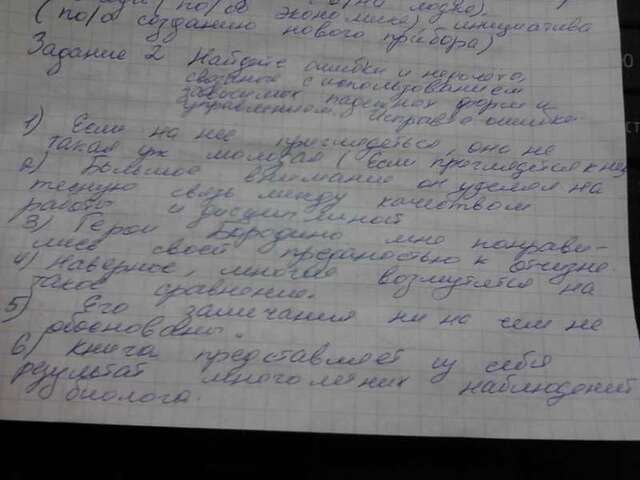 (по/о экономике) инициатива
(по/о созданию нового прибора)
Задание 2 Найдите ошибки и недочёты,
связанные с использованием
зависимых падежных форм и
управлением. Исправьте ошибки
1) Если на нее приглядеться, она не
такая уж молодая (если приглядется к ней
2) Большое внимание он уделял на
тесную связь между качеством
работы и дисциплиной
3) Герои Бородино мне понрави-
лись своей преданностью к отчизне
4) Наверное, многие возмутятся на
такое сравнение.
5) Его замечания ни на чем не
обоснованы.
6) Книга представляет из себя
результат многолетних наблюдений
биолога.